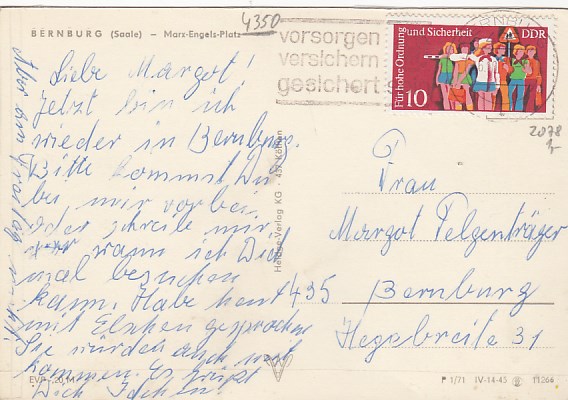 BERNBURG (Saale) – Marx-Engels-Platz
4350
vorsorgen
versichern
gesichert s
Für hohe Ordnung und Sicherheit
DDR
10
2078
1,-
Liebe Margot,
Jetzt bin ich
wieder in Bernburg.
Bitte kommst Du
bei mir vorbei
oder schreibe mir
wann ich Dich
mal besuchen
kann. Habe heut
mit Elschen gesprochen
Sie würden auch mit
kommen. Es grüßt
Dich
Aber am Freitag nicht
Frau
Margot Pelgenträger
435 Bernburg
Hegebreite 31
Heldge-Verlag KG · 437 Köthen
EVP –,20 M
P 1/71 IV-14-45 11266